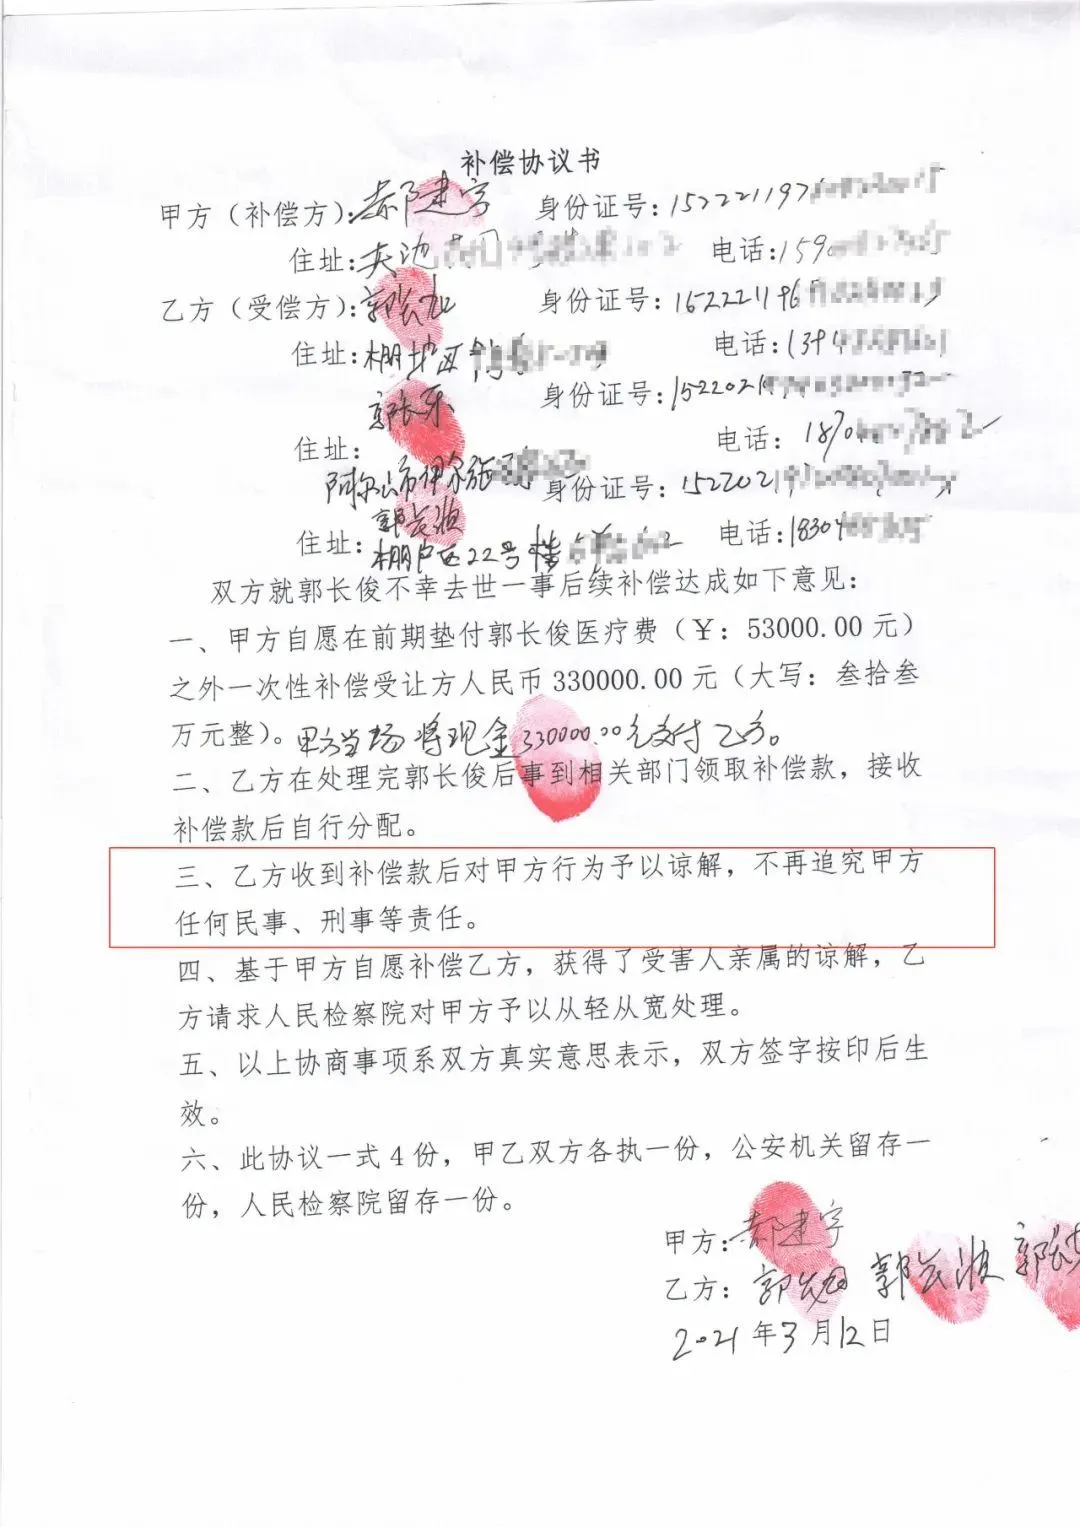 补偿协议书
甲方（补偿方）：郝建宇 身份证号：152221197
住址： 电话：159
乙方（受偿方）： 身份证号：152221196
住址：棚户区 电话：1394
身份证号：152202
住址： 电话：
阿尔山市伊尔施 身份证号：152202
住址：棚户区22号楼 电话：18304
双方就郭长俊不幸去世一事后续补偿达成如下意见：
一、甲方自愿在前期垫付郭长俊医疗费（￥：53000.00元）
之外一次性补偿受让方人民币330000.00元（大写：叁拾叁
万元整）。甲方当场将现金330000.00元支付乙方。
二、乙方在处理完郭长俊后事到相关部门领取补偿款，接收
补偿款后自行分配。
三、乙方收到补偿款后对甲方行为予以谅解，不再追究甲方
任何民事、刑事等责任。
四、基于甲方自愿补偿乙方，获得了受害人亲属的谅解，乙
方请求人民检察院对甲方予以从轻从宽处理。
五、以上协商事项系双方真实意思表示，双方签字按印后生
效。
六、此协议一式4份，甲乙双方各执一份，公安机关留存一
份，人民检察院留存一份。
甲方：郝建宇
乙方：
2021年3月12日